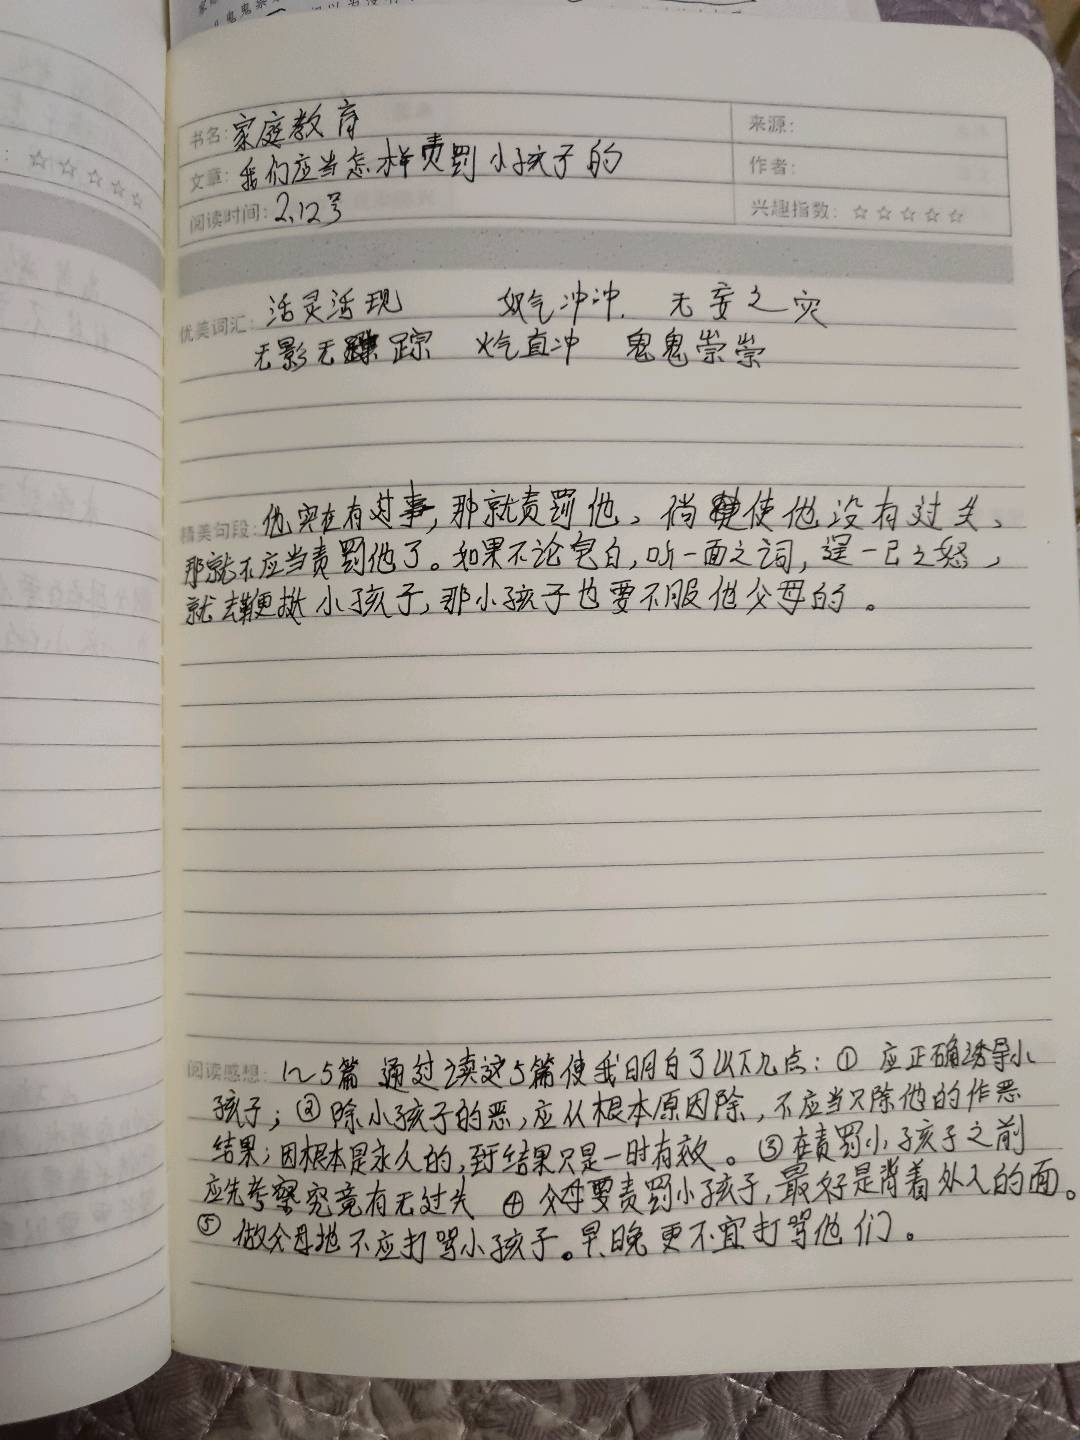 书名: 家庭教育
来源:
文章: 我们应当怎样责罚小孩子的
作者:
阅读时间: 2.12号
兴趣指数: ☆☆☆☆☆
优美词汇: 活灵活现 奴气冲冲. 无妄之灾
无影无踪 火气直冲 鬼鬼崇崇
精美句段: 他实在有过事, 那就责罚他、倘使他没有过失、
那就不应当责罚他了。如果不论皂白, 听一面之词, 逞一己之怒,
就去鞭挞小孩子, 那小孩子也要不服他父母的。
阅读感想: 1~5篇 通过读这5篇使我明白了以下几点: ① 应正确诱导小
孩子; ② 除小孩子的恶, 应从根本原因除, 不应当只除他的作恶
结果; 因根本是永久的, 至于结果只是一时有效。③在责罚小孩子之前
应先考察究竟有无过失 ④ 父母要责罚小孩子, 最好是背着外人的面。
⑤ 做父母地不应打骂小孩子。早晚更不宜打骂他们。